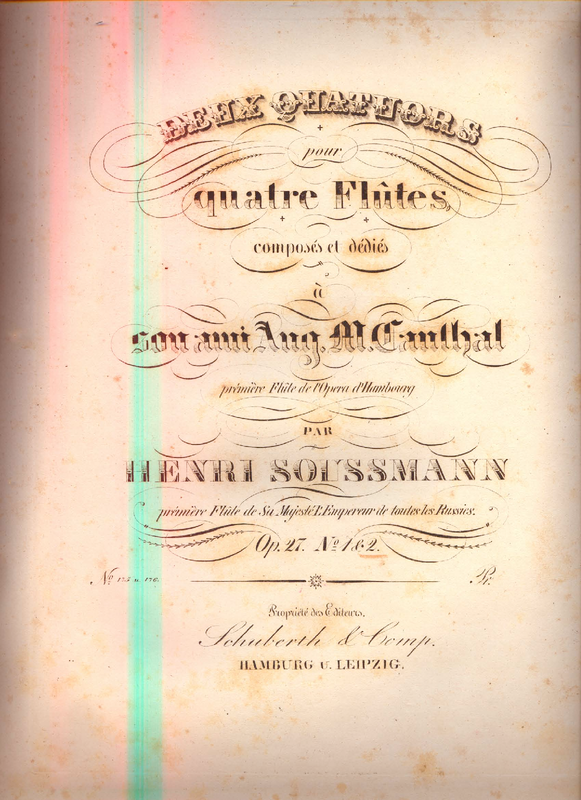 DEUX QUATUORS
pour
quatre Flûtes,
composés et dédiés
à
son ami Aug. M. Canthal
prémière Flûte de l'Opera d'Hambourg
PAR
HENRI SOUSSMANN
prémière Flûte de Sa Majesté L'Empereur de toutes les Russies.
Op. 27. No 1 & 2.
No 175 u. 176. Pr:
Propriété des Editeurs.
Schuberth & Comp.
HAMBURG U. LEIPZIG.